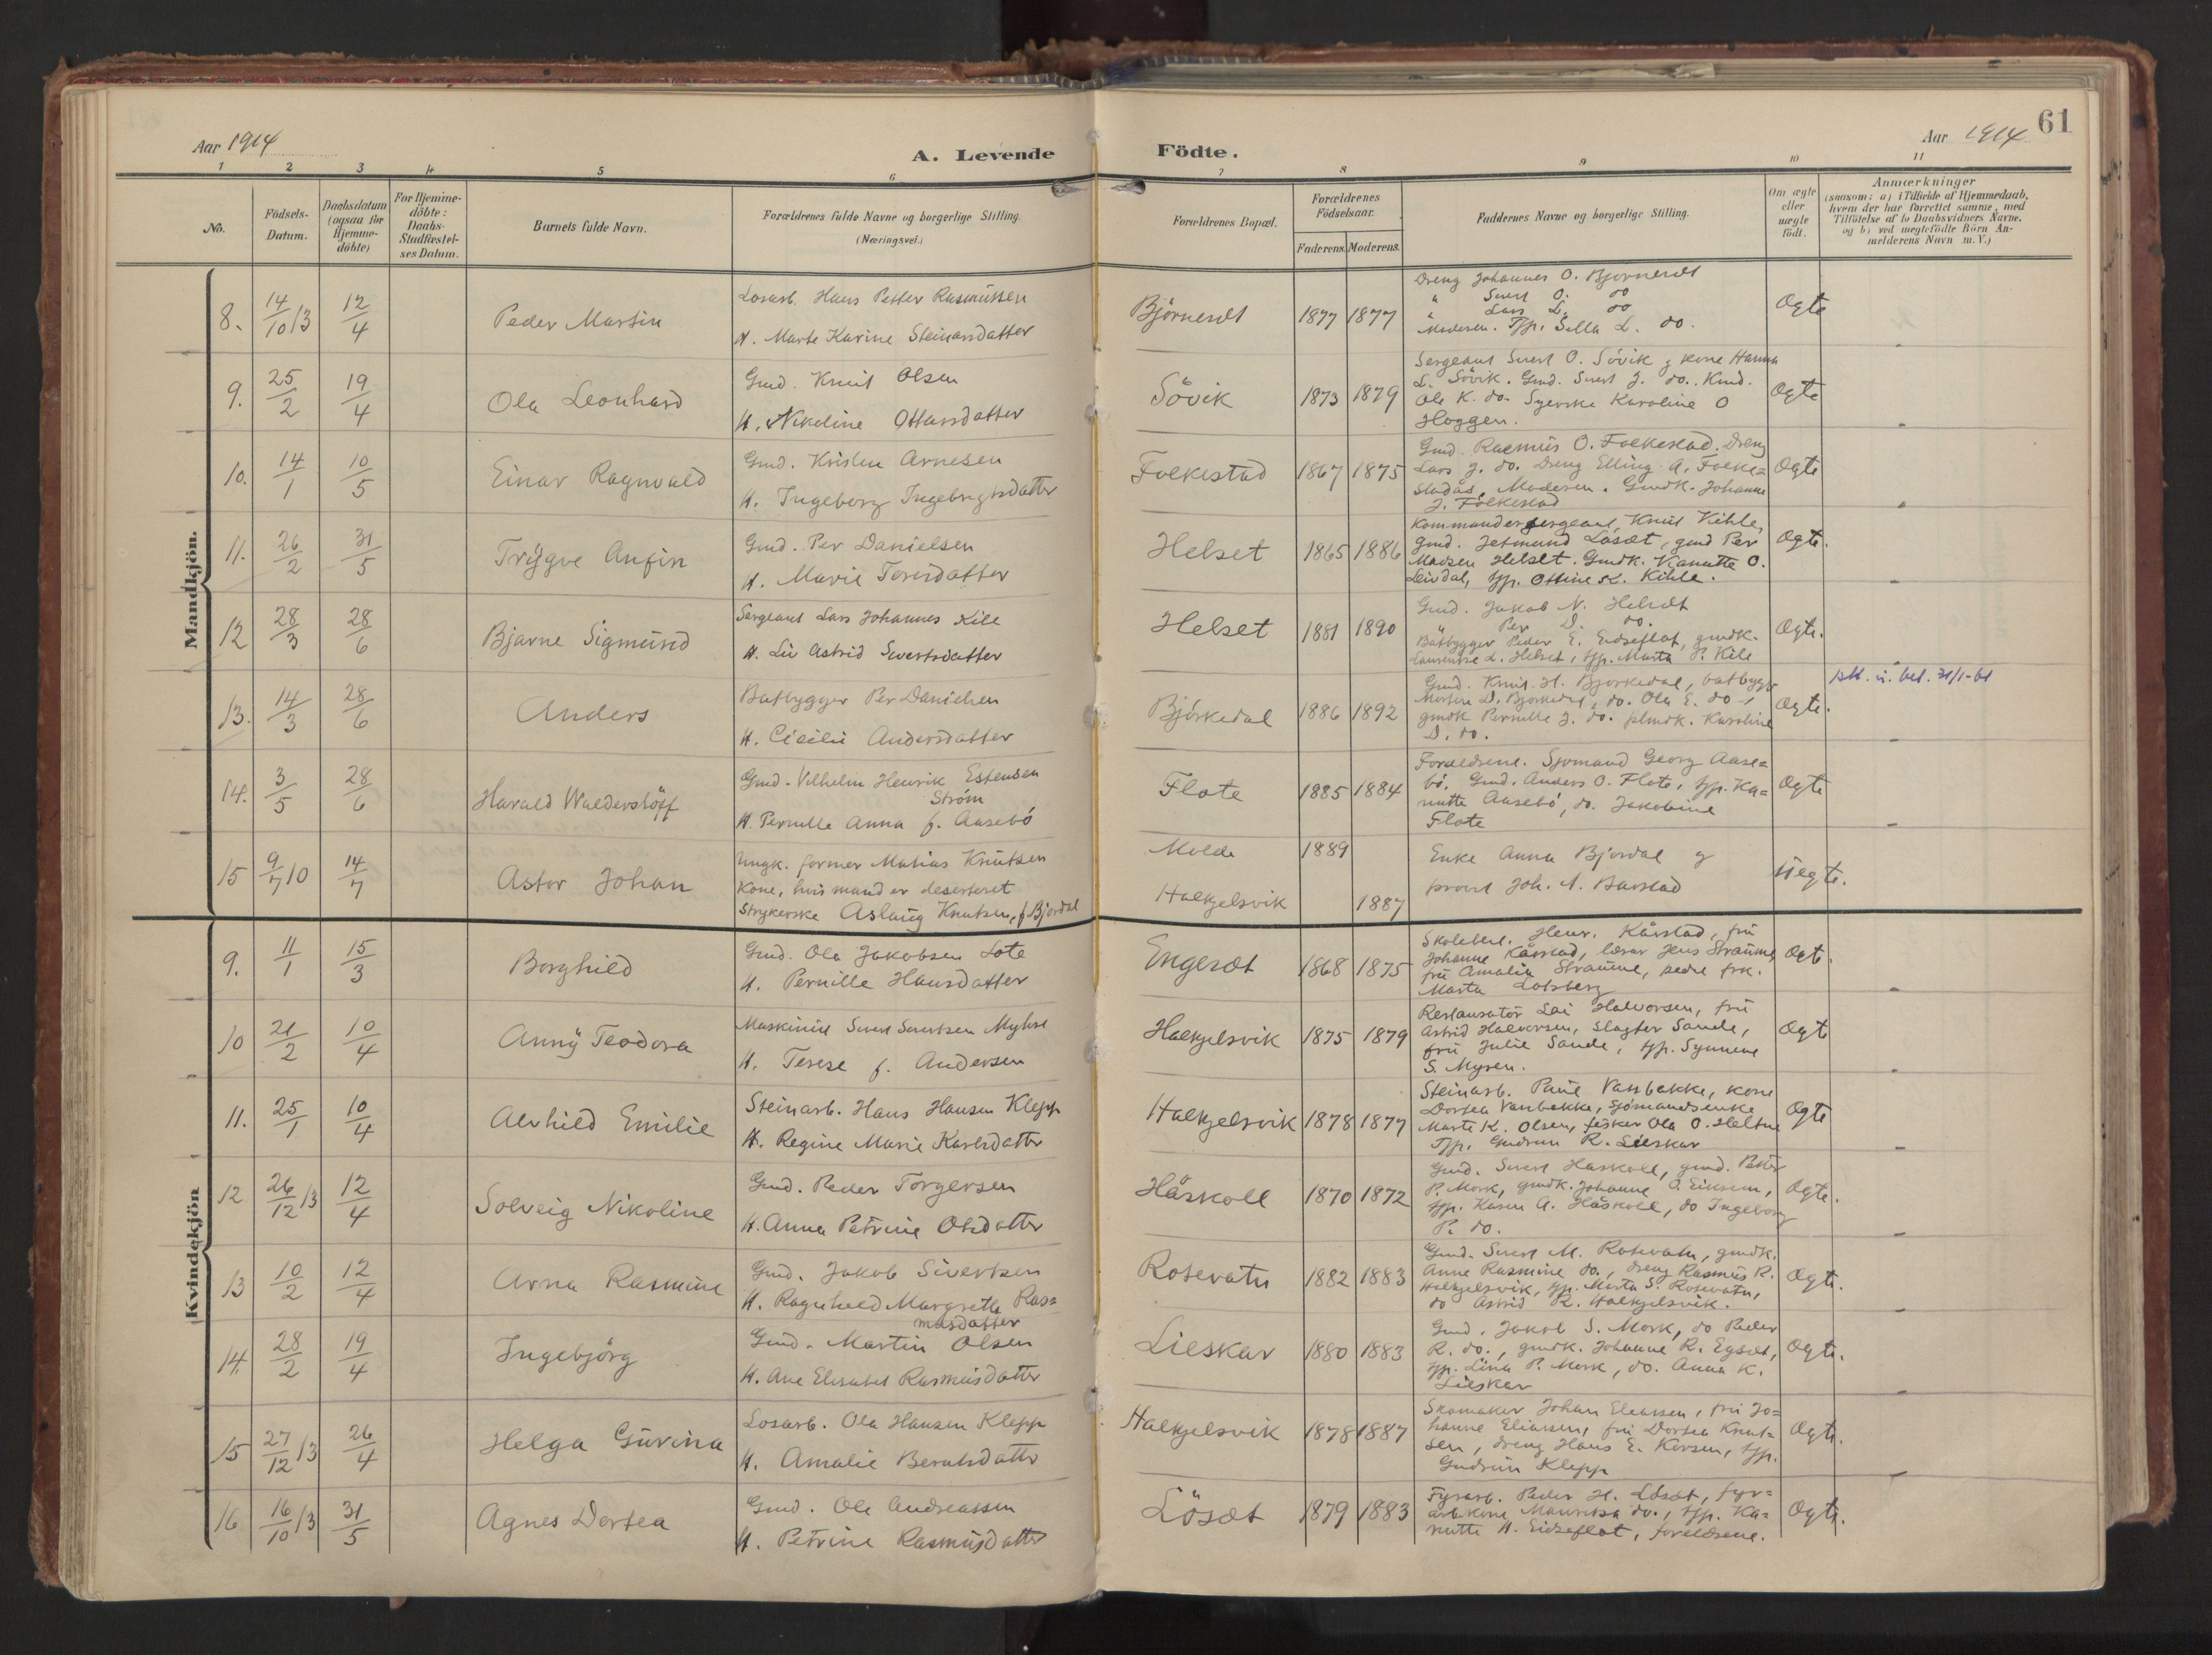 61
Aar 1914
A. Levende Födte.
Aar 1914
1 2 3 4 5 6 7 8 9 10 11
No.
Födsels-
Datum.
Daabsdatum
(ogsaa for
Hjemme-
döbte)
For Hjemme-
döbte:
Daabs-
Stadfæstel-
ses Datum.
Barnets fulde Navn.
Forældrenes fulde Navne og borgerlige Stilling.
(Næringsvei.)
Forældrenes Bopæl.
Forældrenes
Födselsaar.
Faderens. Moderens.
Faddernes Navne og borgerlige Stilling.
Om ægte
eller
uægte
födt.
Anmærkninger
(saasom: a) i Tilfælde af Hjemmedaab,
hvem der har forrettet samme, med
Tilföielse af to Daabsvidners Navne,
og b) ved uægtefödte Börn An-
melderens Navn m. V.)
Mandkjön.
8. 14/10 13 12/4 Peder Martin
Losarb. Hans Petter Rasmussen
H. Marte Karine Steinarsdatter
Björneset 1877 1877
Dreng Johannes O. Bjorneset
" Sivert O. do
" Lars L. do
Moderen. Tjp. Sella L. do.
Ogte
9. 25/2 19/4 Ola Leonhard
Gmd. Knut Olsen
H. Nikoline Ottarsdatter
Sövik 1873 1879
Sergeant Sivert O. Sövik g kone Hanna
L. Sövik. Gmd. Sivert J. do. Kmd.
Ole K. do. Syerske Karoline O
Hoggen.
Ogte
10. 14/1 10/5 Einar Ragnvald
Gmd. Kristen Arnesen
H. Ingeborg Ingebrigtsdatter
Folkestad 1867 1875
Gmd. Rasmus O. Folkestad. Dreng
Lars J. do. Dreng Elling A. Folke=
stadås, Moderen. Gmdk. Johanne
J. Folkestad
Ogte
11. 26/2 31/5 Trygve Anfin
Gmd. Per Danielsen
H. Marie Toresdatter
Helset 1865 1886
Kommandersergeant Knut Kihle,
gmd. Jetmund Löset, gmd Per
Madsen Helset. Gmdk. Kanutte O.
Leivdal, tjp. Ottine K. Kihle.
Ogte.
12 28/3 28/6 Bjarne Sigmund
Sergeant Lars Johannes Kile
H. Liv Astrid Sivertsdatter
Helset 1881 1890
Gmd. Jakob N. Helset
" Per D. do.
Båtbygger Peder E. Eidseflot, gmdk.
Laurentse L. Helset, tjp. Marta P. Kile
Ogte.
13. 14/3 28/6 Anders
Båtbygger Per Danielsen
H. Cicilie Andersdatter
Björkedal 1886 1892
Gmd. Knut H. Bjorkedal, båtbygge
Morten D. Bjorkedal, do. Ola E. do,
gmdk Pernille J. do. plmdk. Karoline
D. do.
Ogte.
14. 3/5 28/6 Harald Waldershöff
Gmd. Vilhelm Henrik Estensen
Ström
H. Pernille Anna f. Aasebö
Flote 1885 1884
Foreldrene. Sjomand Georg Aase=
bö, Gmd. Anders O. Flote, tjp. Ka=
nutte Aasebö, do. Jakobine
Flote
Ogte
15 9/7 10 14/7 Astor Johan
Ungk. former Matias Knutsen
Kone, hvis mand er deserteret
Strykerske Aslaug Knutsen, f. Bjordal
Molde 1889
Halkjelsvik 1887
Enke Anna Bjordal g
provst Joh. A. Barstad
Uegte.
Kvindekjön
9. 11/1 15/3 Borghild
Gmd. Ola Jakobsen Lote
H. Pernille Hansdatter
Engeset 1868 1875
Skolebest. Henr. Kårstad, fru
Johanne Kårstad, lærar Jens Straume,
fru Amalia Straume, frk.
Marta Lotsberg
Ogte.
10 21/2 10/4 Anny Teodora
Maskinist Sivert Sivertsen Myhre
H. Terese f. Andersen
Halkjelsvik 1875 1879
Restauratör Lai Halvorsen, fru
Astrid Halvorsen, slagter Sande,
fru Julie Sande, tjp. Synneve
S. Myren.
Ogt
11. 25/1 10/4 Alvhild Emilie
Steinarb. Hans Hansen Klepp
H. Regine Marie Karlsdatter
Halkjelsvik 1878 1877
Steinarb. Paul Vassbakke, kone
Dortea Vanbakke, sjömandsenke
Marte K. Olsen, fisker Ola O. Heltne
Tjp. Gudrun R. Lieskar
Ogte
12 26/12 13 12/4 Solveig Nikoline
Gmd. Peder Torgersen
H. Anna Petrine Olsdatter
Håskoll 1870 1872
Gmd. Sivert Haskoll, gmd. Peter
P. Mork, gmdk. Johanne O. Eiksem,
tjp. Karen A. Håskoll, do Ingeborg
P. do.
Ogte.
13 10/2 12/4 Arna Rasmine
Gmd. Jakob Sivertsen
H. Ragnhild Margrethe Ras=
musdatter
Rotevatn 1882 1883
Gmd. Sivert M. Rotevatn, gmdk.
Anne Rasmine do., dreng Rasmus R.
Halkjelsvik, tjp. Marta S. Rotevatn,
do Astrid R. Halkjelsvik.
Ogte.
14. 28/2 19/4 Ingebjörg
Gmd. Martin Olsen
H. Ane Elisabet Rasmusdatter
Lieskar 1880 1883
Gmd. Jakob S. Mork, do Peder
R. do., gmdk. Johanne R. Egset,
tjp. Lina P. Mork, do. Anna K.
Lieskar
Ogte.
15 27/12 13 26/4 Helga Gurina
Losarb. Ola Hansen Klepp
H. Amalie Berntsdatter
Halkjelsvik 1878 1887
Skomaker Johan Eliassen, fru Jo=
hanne Eliassen, fru Dortea Knut=
sen, dreng Hans E. Iversen, tjp.
Gudrun Klepp
Ogte.
16 16/10 13 31/5 Agnes Dortea
Gmd. Ole Andreassen
H. Petrine Rasmusdatter
Löset 1879 1883
Fyrarb. Peder H. Löset, fyr=
arb.kone Mauritsa do., tjp. Ka=
nutte H. Eidseflot, foreldrene.
Ogte.